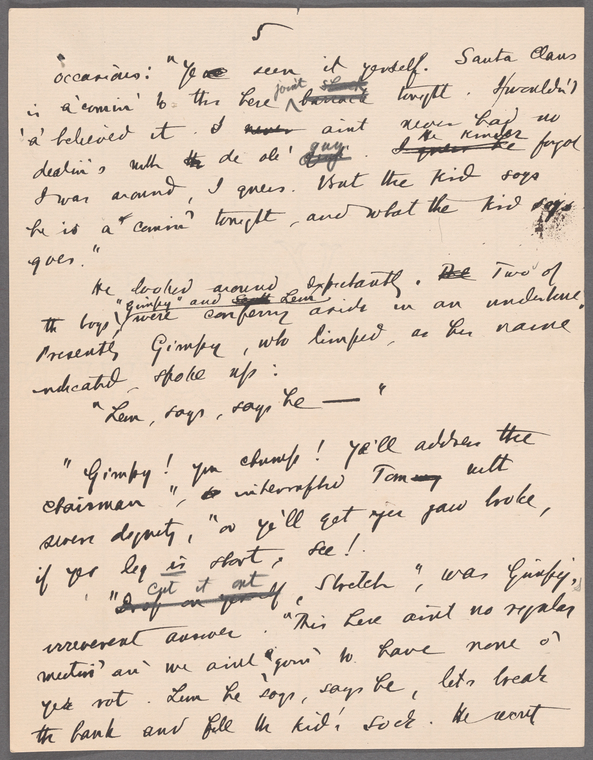 5
occasions: "Ye seen it yerself. Santa Claus
is a'comin' to this here joint tonight. I wouldn't
'a' believed it. I never aint never had no
dealin's with de ole' guy. He kinder forgot
I was around, I guess. But the kid says
he is a' comin' tonight, and what the kid says
goes."
He looked around expectantly. Two of
the boys, "Gimpy" and Lem, were conferring aside in an undertone.
Presently Gimpy, who limped, as his name
indicated, spoke up:
"Lem, says, says he — "
"Gimpy! you chump! ye'll address the
chairman", interrupted Tom with
severe dignity, "or ye'll get yer jaw broke,
if yer leg is short, see!
"Cut it out, Stretch", was Gimpy's
irreverent answer. "This here aint no regular
meetin' an' we aint goin' to have none o'
yer rot. Lem he says, says he, let's break
the bank and fill the Kid's sock. He won't